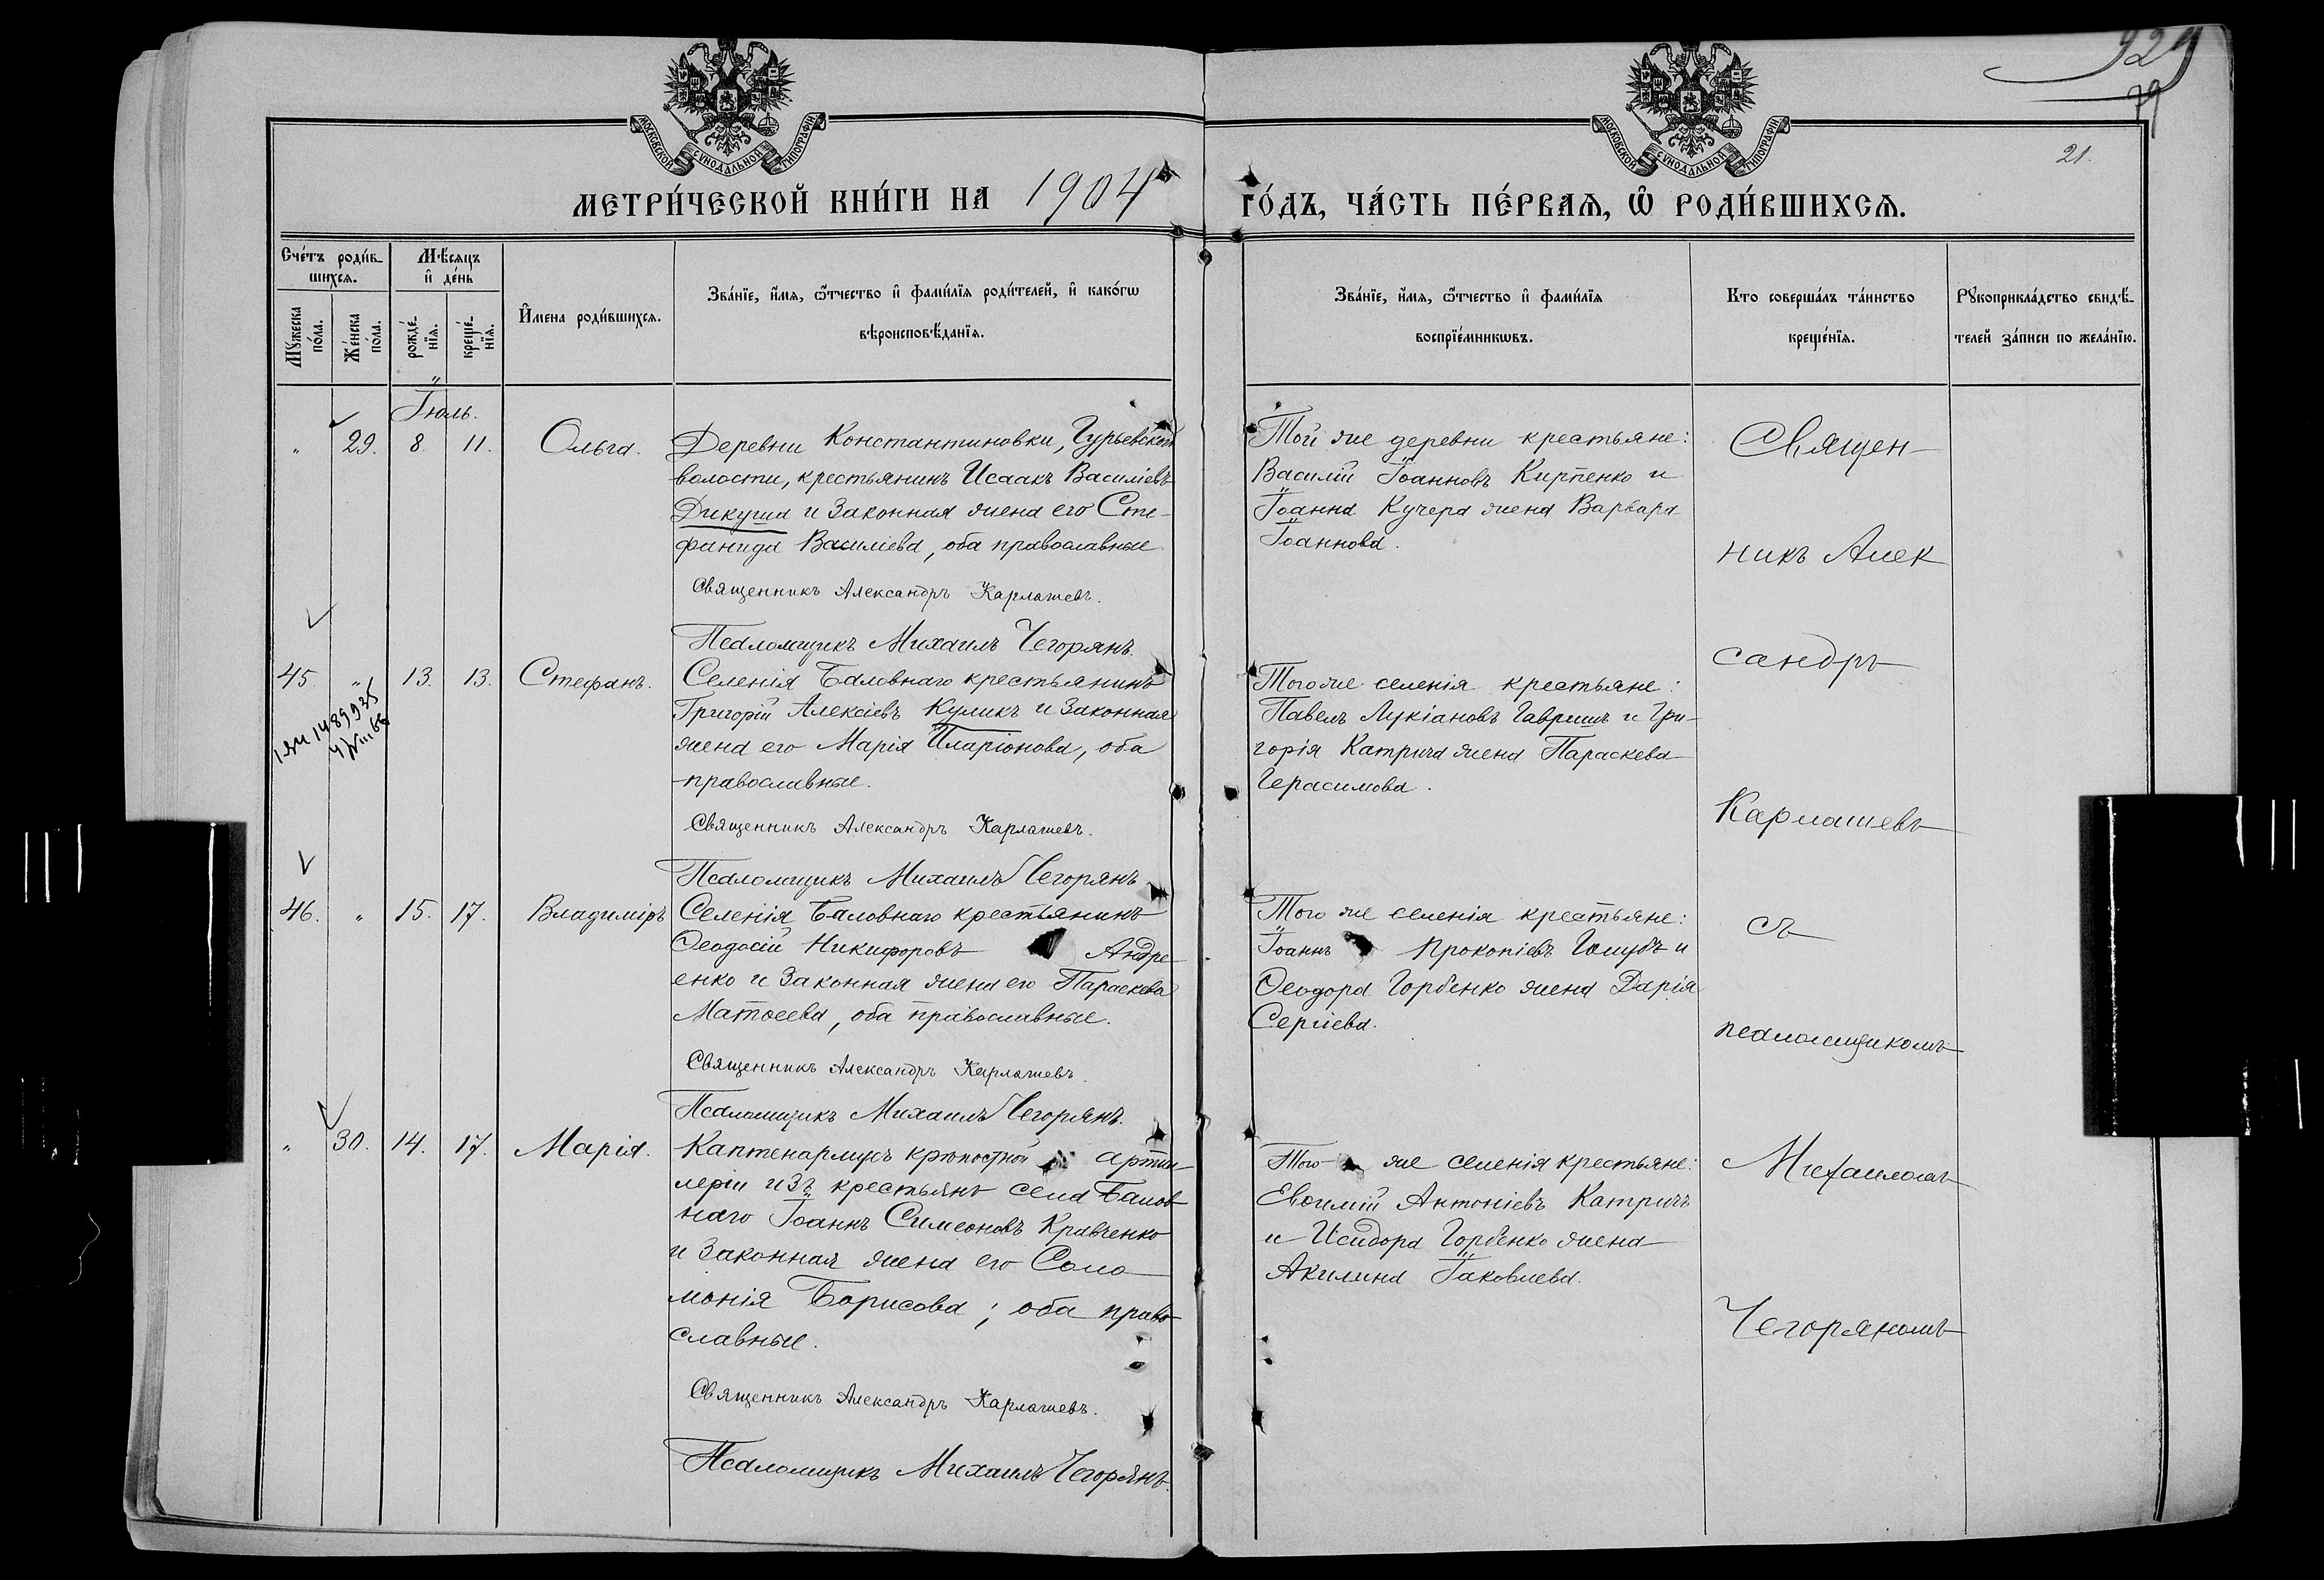 929
79
21.
МОСКОВСКОЙ СѴНОДАЛЬНОЙ ТИПОГРАФІИ
МОСКОВСКОЙ СѴНОДАЛЬНОЙ ТИПОГРАФІИ
МЕТРИ́ЧЕСКОЙ КНИ́ГИ НА 1904 ГО́ДЪ, ЧА́СТЬ ПЕ́РВАѦ, Ѡ҆ РОДИ́ВШИХСѦ.
Сче́тъ роди́в-
шихсѧ.
Мꙋ́жеска по́ла.
Же́нска по́ла.
Мѣ́сѧцъ
и҆ де́нь
рожде́-
нїѧ.
креще́-
нїѧ.
И҆мена роди́вшихсѧ.
Зва́нїе, и҆́мѧ, ѻ҆́тчество и҆ фами́лїѧ роди́телей, и҆ како́гѡ
вѣроисповѣ́данїѧ.
Зва́нїе, и҆́мѧ, ѻ҆́тчество и҆ фами́лїѧ
воспрїе́мникѡвъ.
Кто соверша́лъ та́инство
креще́нїѧ.
Рꙋкоприкла́дство свидѣ́-
телей за́писи по жела́нїю.
Іюль.
" 29. 8. 11. Ольга.
Деревни Константиновки, Гурьевской
волости, крестьянинъ Исаакъ Василіевъ
Дикуша и законная жена его Сте-
фанида Василіева, оба православные.
Священникъ Александръ Карлашевъ.
Псаломщикъ Михаилъ Чегорянъ.
Той же деревни крестьяне:
Василій Іоанновъ Кирпенко и
Іоанна Кучера жена Варвара
Іоаннова.
45. " 13. 13. Стефанъ.
Селенія Баловнаго крестьянинъ
Григорій Алексіевъ Куликъ и законная
жена его Марія Иларіонова, оба
православные.
Священникъ Александръ Карлашевъ.
Псаломщикъ Михаилъ Чегорянъ
Того же селенія крестьяне:
Павелъ Лукіановъ Гавришъ и Гри-
горія Катрича жена Параскева
Герасимова.
46. " 15. 17. Владиміръ
Селенія Баловнаго крестьянинъ
Ѳеодосій Никифоровъ Андре-
енко и законная жена его Параскева
Матѳеева, оба православные.
Священникъ Александръ Карлашевъ.
Псаломщикъ Михаилъ Чегорянъ.
Того же селенія крестьяне:
Іоаннъ Прокопіевъ Голубъ и
Ѳеодора Горбенко жена Дарія
Сергіева.
" 30. 14. 17. Марія.
Каптенармусъ крѣпостной артил-
леріи изъ крестьянъ села Балов-
наго Іоаннъ Симеоновъ Кравченко
и законная жена его Соло-
монія Борисова; оба право-
славные.
Священникъ Александръ Карлашевъ.
Псаломщикъ Михаилъ Чегорянъ.
Того же селенія крестьяне:
Евѳимій Антоніевъ Катричъ
и Исидора Горбенко жена
Акилина Іаковлева.
Священ-
никъ Алек
сандръ
Карлашевъ
съ
псаломщикомъ
Михаиломъ
Чегоряномъ